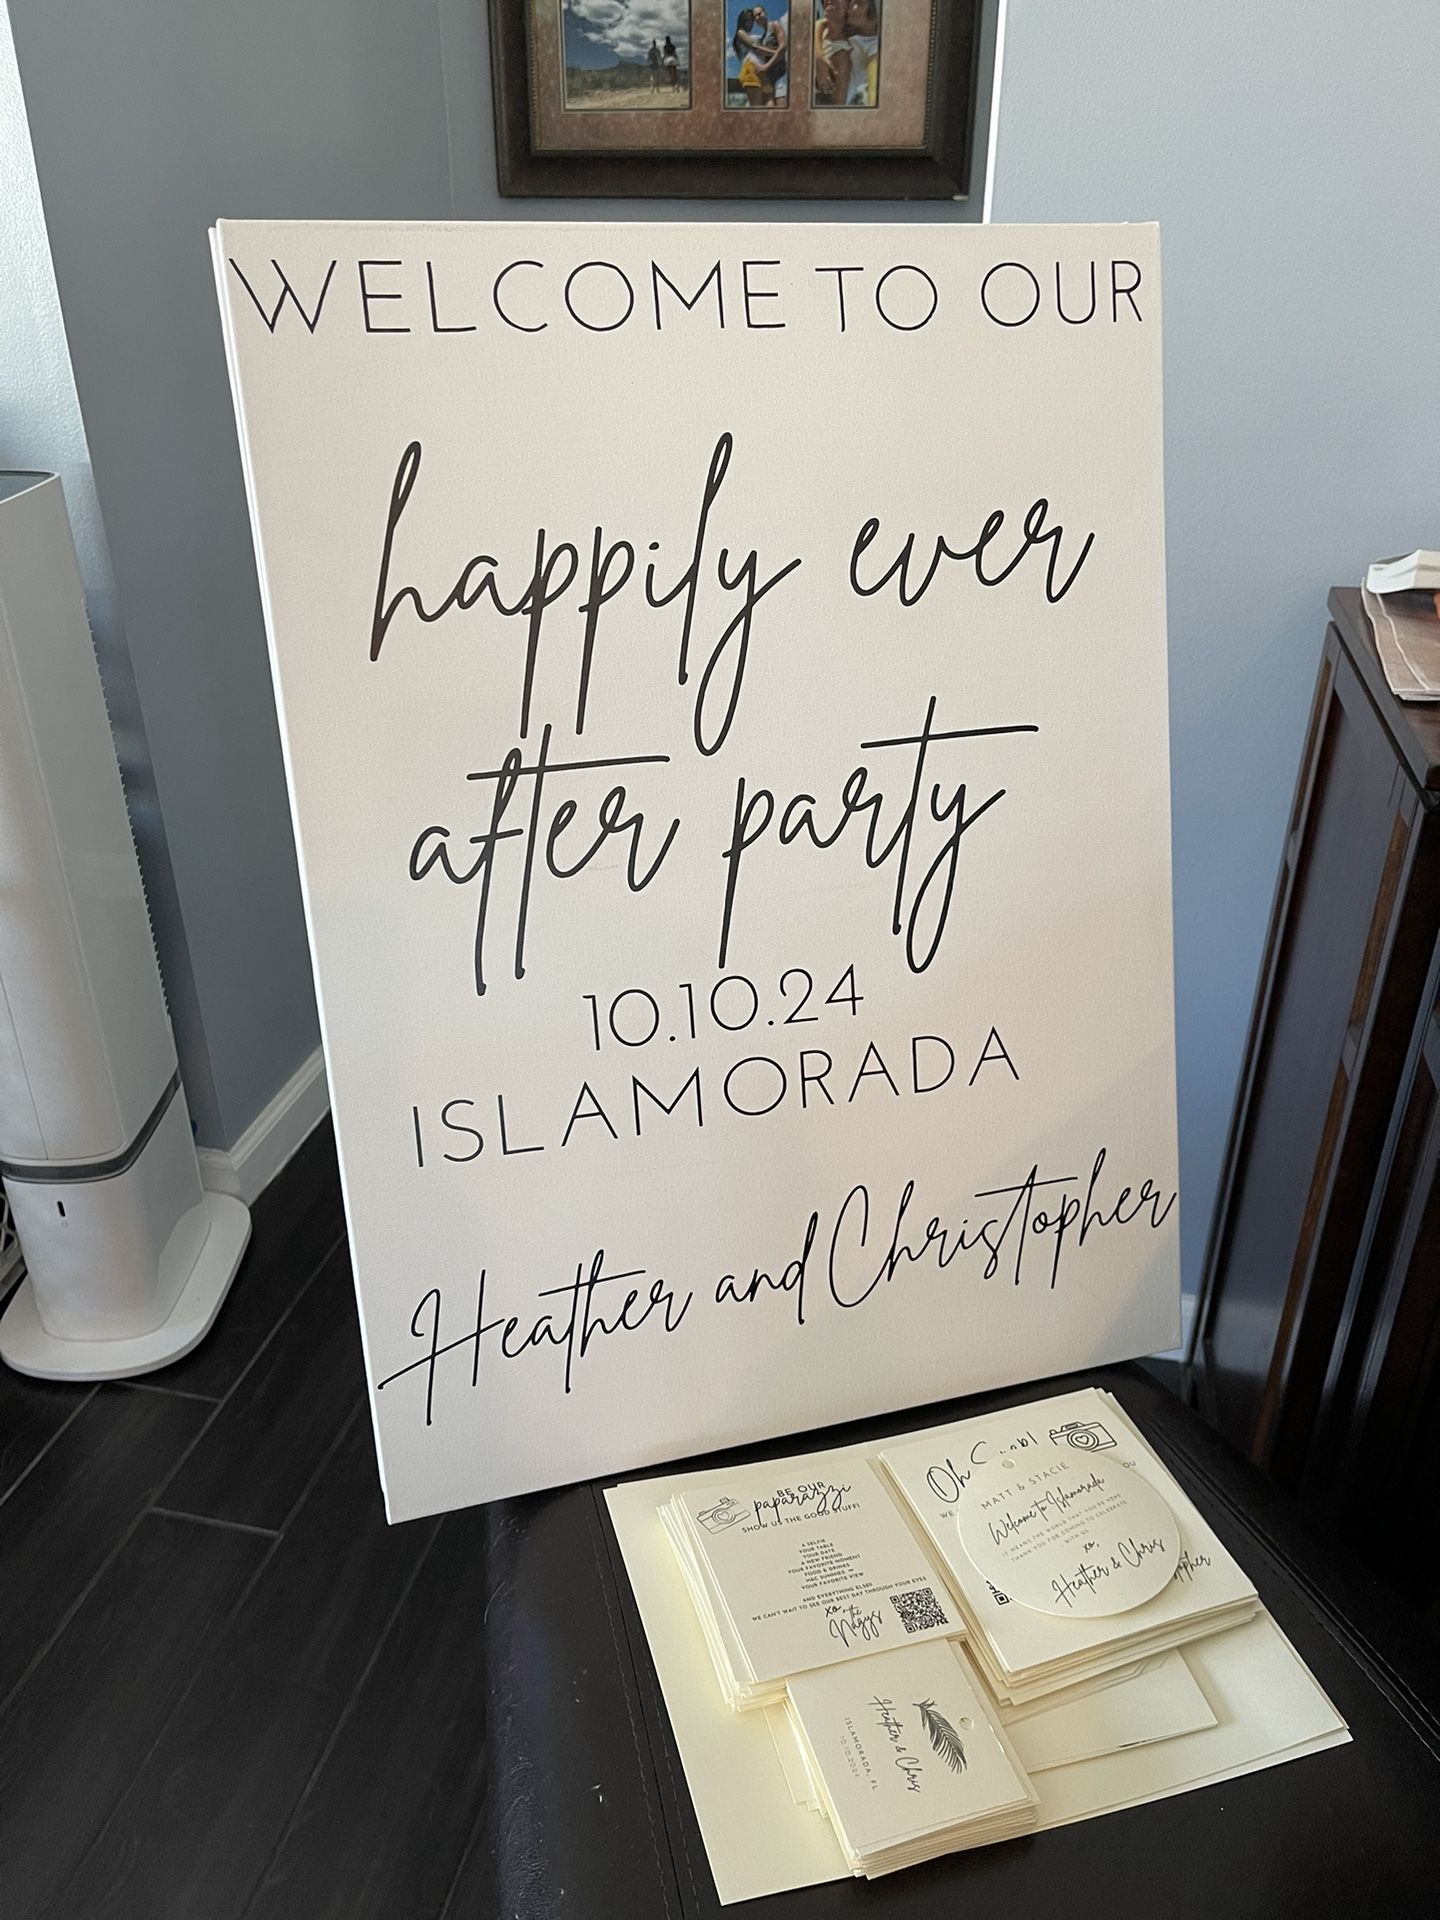 WELCOME TO OUR
happily ever
after party
10.10.24
ISLAMORADA
Heather and Christopher
BE OUR
paparazzi
SHOW US THE GOOD STUFF!
A SELFIE
YOUR TABLE
YOUR DATE
A NEW FRIEND
YOUR FAVORITE MOMENT
FOOD & DRINKS
H&C SUNNIES
YOUR FAVORITE VIEW
AND EVERYTHING ELSE!
WE CAN'T WAIT TO SEE OUR BEST DAY THROUGH YOUR EYES
xo, the
Nagys
Oh
WE
OU
MATT & STACIE
Welcome to Islamorada
IT MEANS THE WORLD THAT YOU'RE HERE
THANK YOU FOR COMING TO CELEBRATE
WITH US
xo,
Heather & Chris
opher
Heather & Chris
ISLAMORADA, FL
10.10.2024